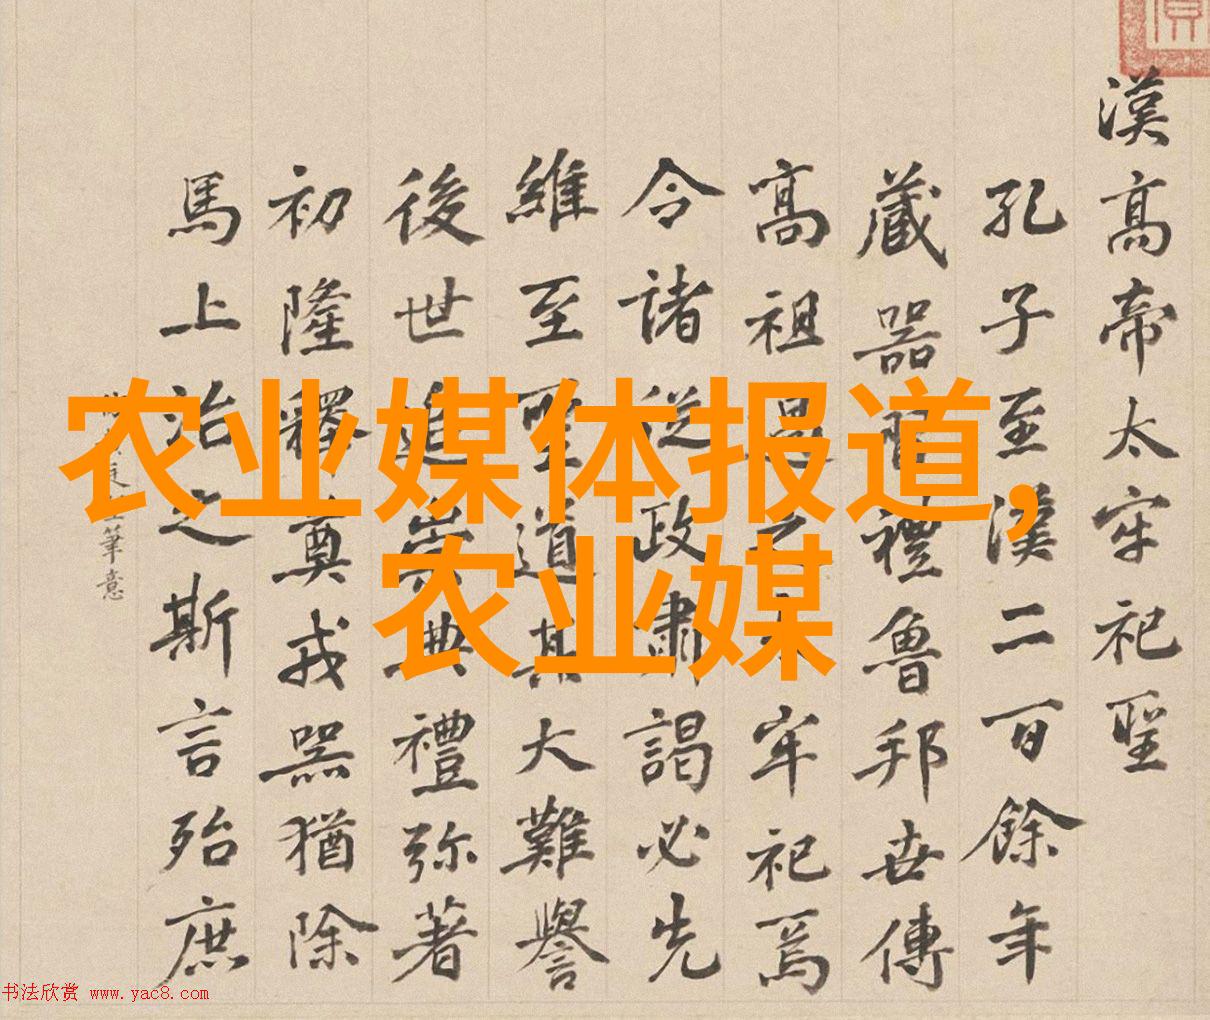 漢高帝太牢祀聖
孔子至漢二百餘年
藏器習禮魯邦世傳
高祖過之太牢祀焉
令諸從政肅謁必先
維至聖道莫大難譽
後世追崇典禮弥著
初隆釋奠戎器猶除
馬上治之斯言殆庶
筆意
农业媒体报道,
农业媒
书法欣赏 www.yac8.com